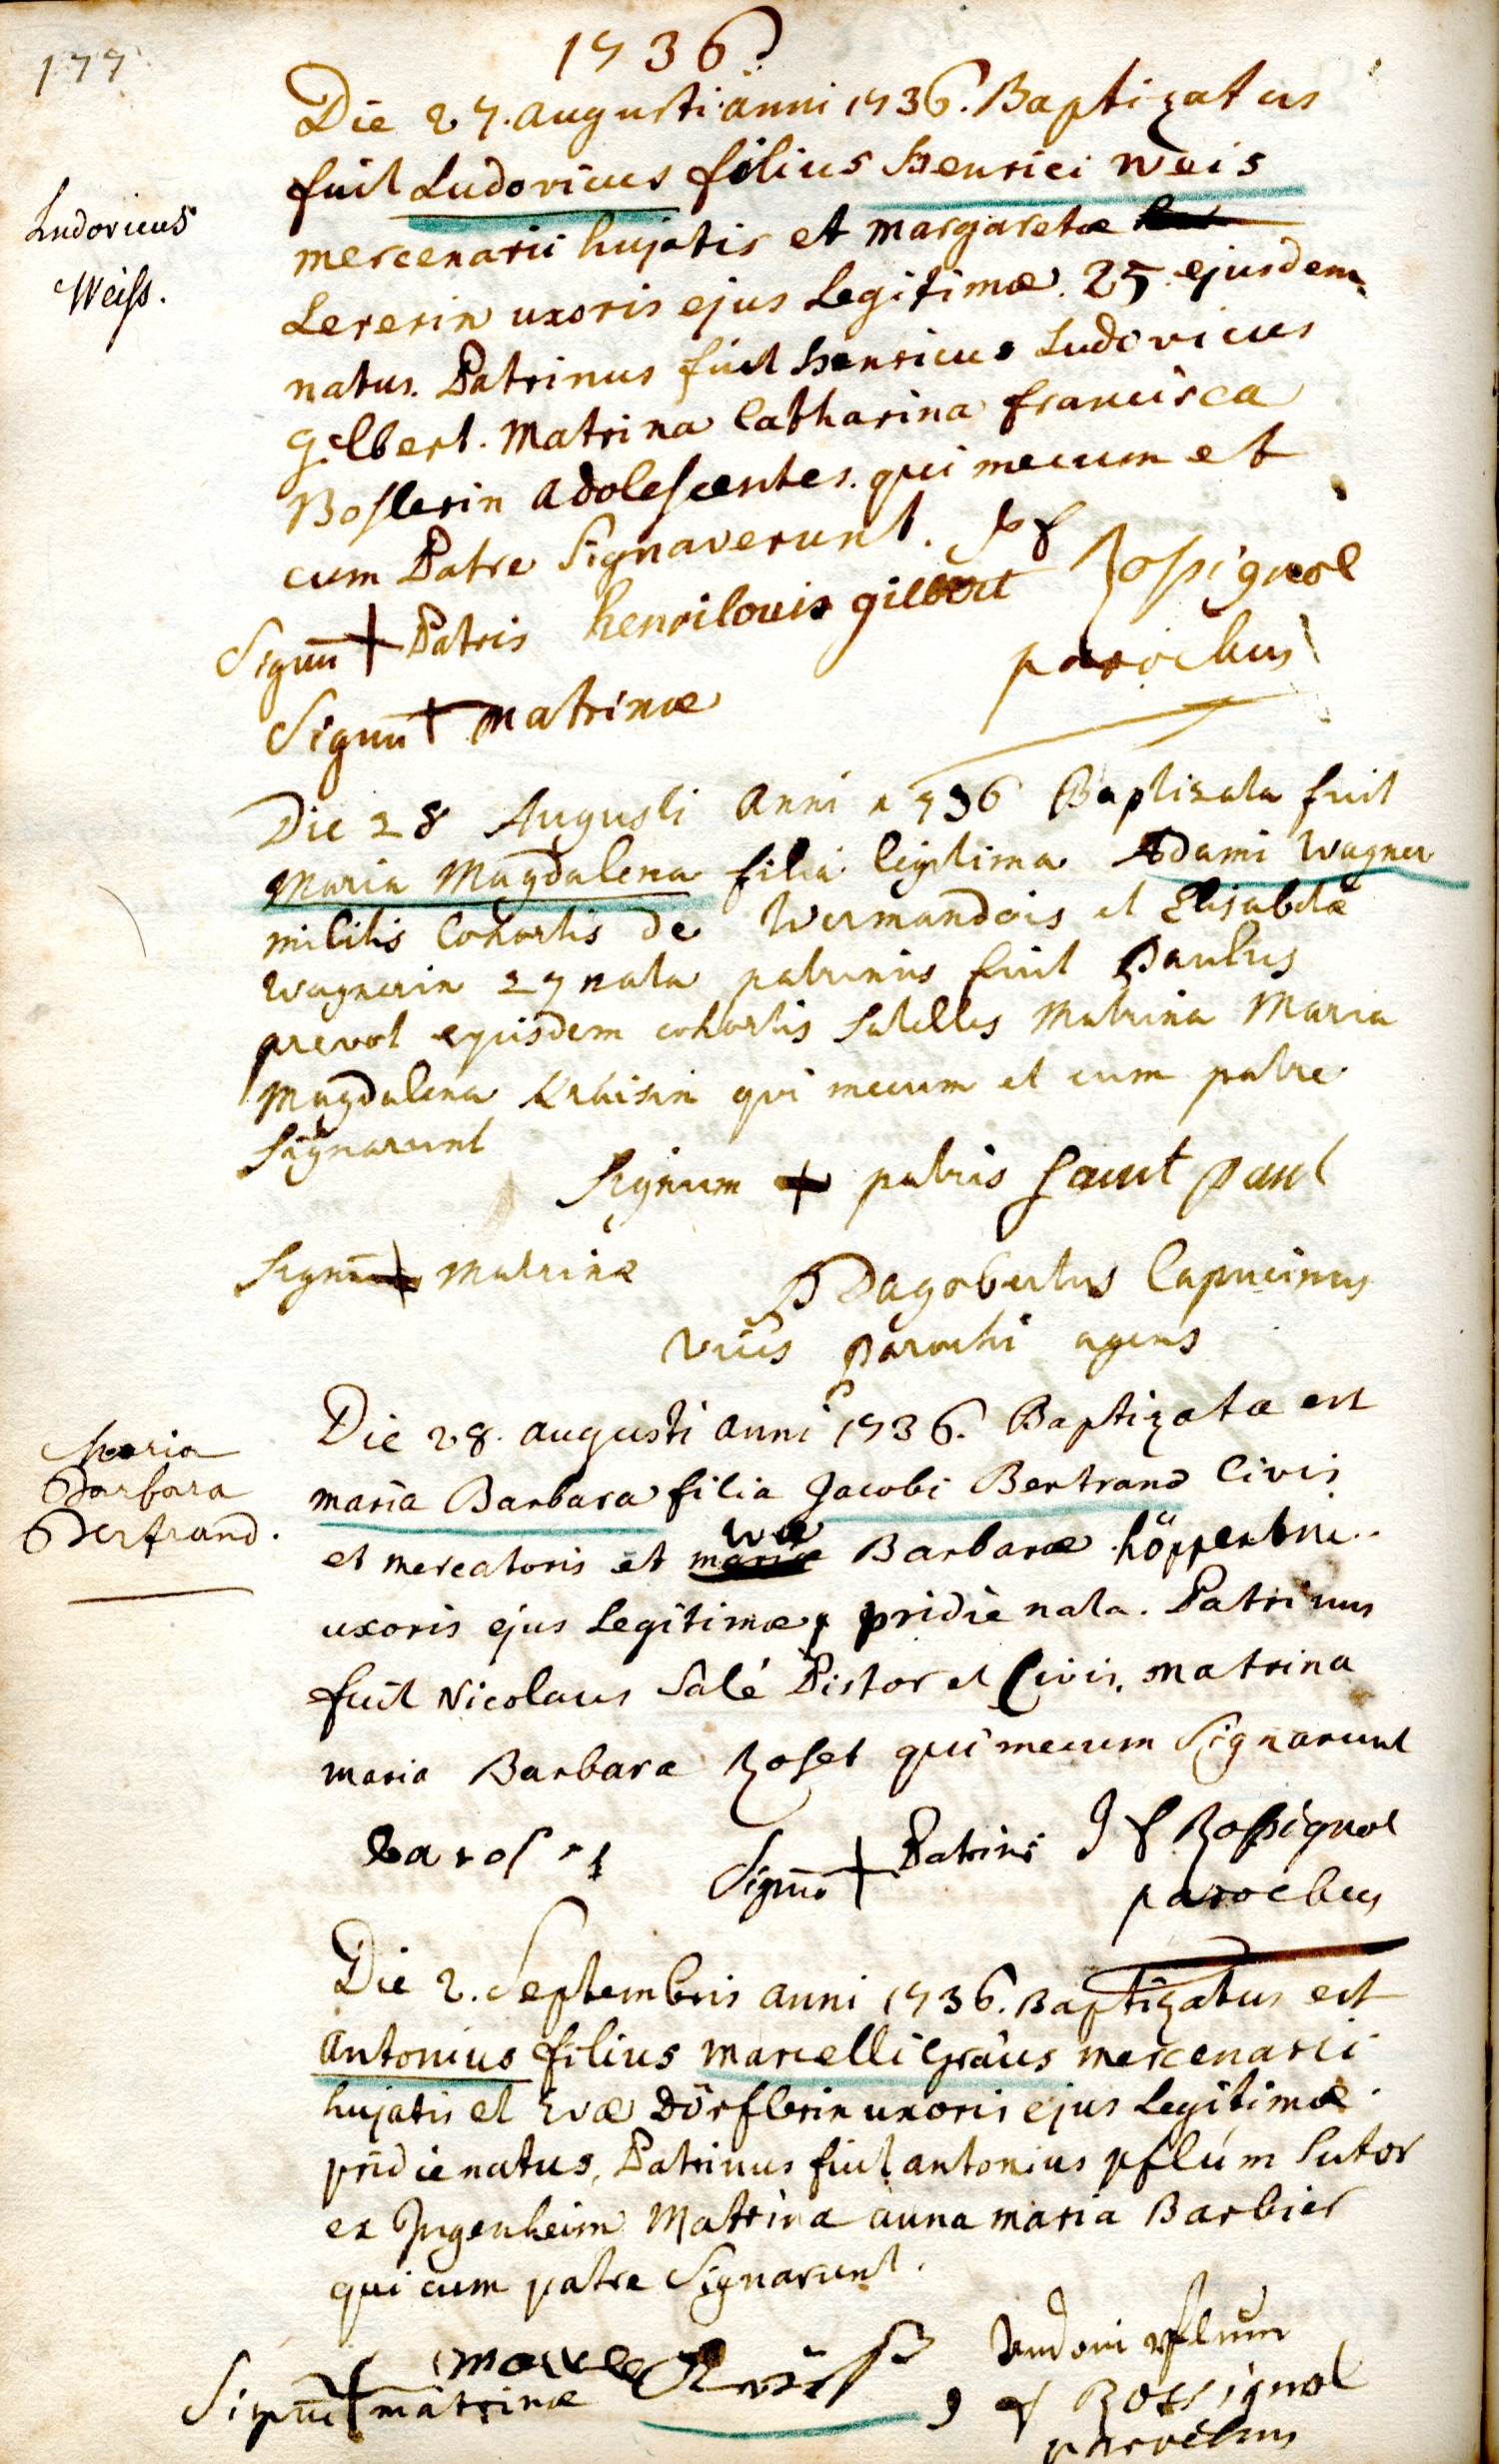 177
1736
Die 27. augusti anni 1736. Baptizatus
fuit Ludovicus filius Henrici Weis
Ludovicus
Weiss.
mercenarii hujatis et margaretæ
Lererin uxoris ejus Legitimæ. 25. ejusdem
natus. Patrinus fuit Henricus Ludovicus
gilbert. Matrina Catharina francisca
Boslerin adolescentes. qui mecum et
cum Patre Signaverunt. J f Rossignol
Signū + Patris henrilouis gilbert
parochus
Signū + matrinæ
Die 28 Augusti Anni 1736 Baptizata fuit
Maria Magdalena filia legitima Adami Wagner
militis Cohortis de Wermandois et Elisabetæ
wagnerin 27 nata patrinus fuit Paulus
prevot ejusdem cohortis satelles Matrina Maria
Magdalena qui mecum et cum patre
signarunt
Signum + patris saint paul
Signū + Matrinæ
P Dagobertus Capucinus
vices Parochi agens
Die 28. augusti anni 1736. Baptizata est
Maria
Barbara
Bertrand.
maria Barbara filia Jacobi Bertrand Civis
et mercatoris et mariæ Barbaræ höppertin
uxoris ejus Legitimæ, pridie nata. Patrinus
fuit Nicolaus Salé Pistor et Civis. matrina
maria Barbara Roset qui mecum Signarunt
Signū + Patrini J f Rossignol
parochus
Die 2. Septembris anni 1736. Baptizatus est
antonius filius marcelli Graüs mercenarii
hujatis et Evæ Dörflerin uxoris ejus Legitimæ
pridie natus, Patrinus fuit antonius pflúm Sutor
ex Jngenheim Matrina anna maria Barbier
qui cum patre Signarunt.
pflŭm
Signū + matrinæ
J f Rossignol
parochus